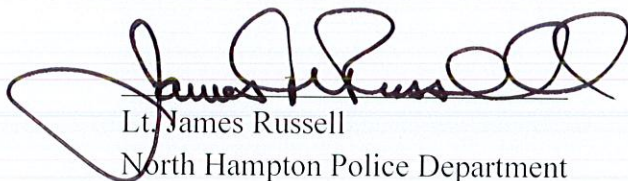 James M Russell
Lt. James Russell
North Hampton Police Department